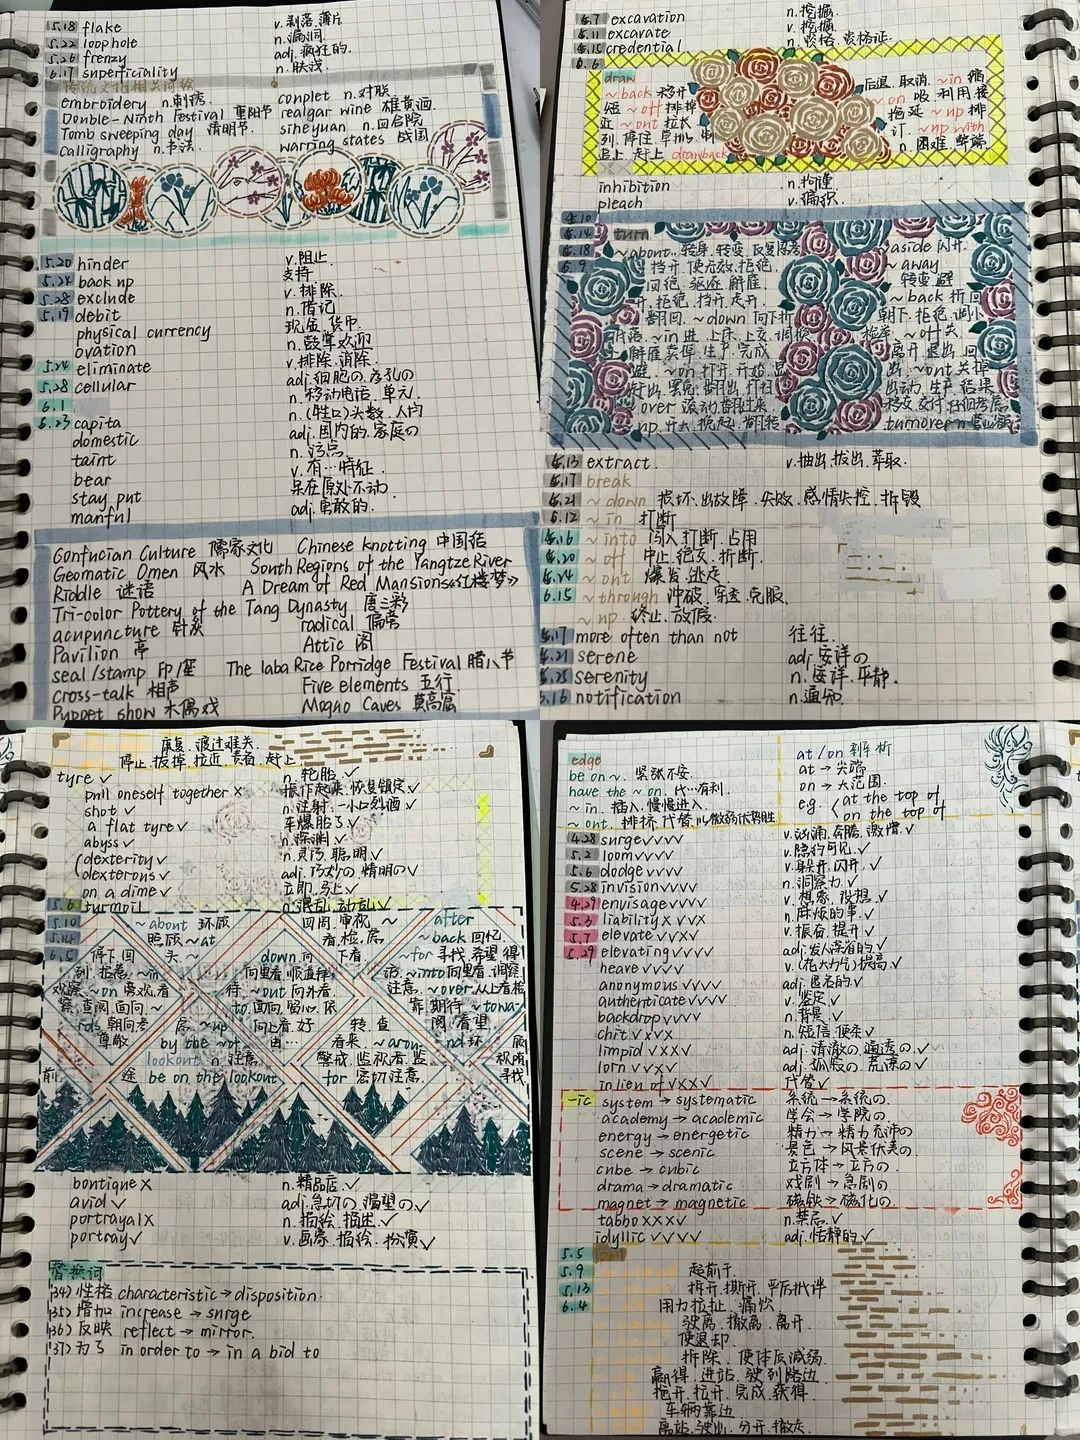 5.18 flake v.剥落.薄片
5.22 loophole n.漏洞.
5.26 frenzy adj.疯狂的.
6.17 superficiality n.肤浅.
传统文化相关词绘
embroidery n.刺绣. couplet n.对联
Double-Ninth Festival 重阳节. realgar wine 雄黄酒.
Tomb sweeping day 清明节. siheyuan n.四合院
calligraphy n.书法. warring states 战国
5.20 hinder v.阻止.
5.24 back up 支持
5.28 exclude v.排除.
5.19 debit n.借记
physical currency 现金.货币.
ovation n.鼓掌欢迎
5.24 eliminate v.排除.消除.
5.28 cellular adj.细胞の.多孔の
6.1 n.移动电话.单元.
6.23 capita n.(牲口)头数.人均
domestic adj.国内的.家庭の
taint n.污点
bear v.有…特征.
stay put 呆在原处不动.
manful adj.勇敢的.
Confucian Culture 儒家文化 Chinese knotting 中国结
Geomatic Omen 风水 South Regions of the Yangtze River
Riddle 谜语 A Dream of Red Mansions《红楼梦》
Tri-color Pottery of the Tang Dynasty 唐三彩
acupuncture 针灸 radical 偏旁
Pavilion 亭 Attic 阁
seal/stamp 印/座 The laba Rice Porridge Festival 腊八节
cross-talk 相声 Five elements 五行
Puppet show 木偶戏 Mogao Caves 莫高窟
5.7 excavation n.挖掘.
5.11 excavate v.挖掘.
5.15 credential n.资格.资格证.
6.6
draw 后退.取消. ~in 缩
~back 移开 ~on 吸.利用.接
短 ~off 排掉 拖延 ~up 排
近 ~out 拉长 订. ~up with
列.停住.草拟. n.困难.弊端.
追上.赶上 drawback
inhibition n.拘谨
pleach v.编织.
5.10
5.14 turn
5.18 ~about. 转身.转变.反复思考 aside 闪开.
6.9 挡开.使无效.拒绝. ~away
回绝.驱逐.解雇 转变.避
开.拒绝.挡开.走开 ~back 折回
翻回. ~down 向下折 朝下.拒绝.调小
~in 进.上床.上交.调换 ~off 关.
解雇.卖掉.生产.完成 离开.退出
避. ~on 打开.开始 出. ~out 关掉
好出.罢免.翻出.打扫 出动.生产.结果
over 滚动.翻过来 移交.交付.仔细考虑
~up 开大.挽起.翻转 turnover n.营业额
5.13 extract. v.抽出.拔出.萃取.
5.17 break
5.21 ~down 损坏.出故障.失败.感情失控.拆毁
5.12 ~in 打断
5.16 ~into 闯入.打断.占用
5.20 ~off 中止.绝交.折断.
5.24 ~out 爆发.逃走.
6.15 ~through 冲破.穿透.克服.
~up 终止.放假.
5.17 more often than not 往往.
5.21 serene adj.安详の
5.25 serenity n.安详.平静.
5.16 notification n.通知.
康复.渡过难关.
停止.拔掉.拉近.责备.赶上
tyre √ n.轮胎.√
pull oneself together x 振作起来.恢复镇定√
shot √ n.注射.一小口烈酒√
a flat tyre √ 车爆胎了.√
abyss √ n.深渊√
dexterity √ n.灵巧.聪明√
dexterous √ adj.巧妙の.精明の√
on a dime √ 立即.马上√
5.6 turmoil n.混乱.动乱√
5.10 ~about 环顾 四周.审视 ~ after
5.14 照顾 ~at 看.检.虑 ~back 回忆
6.5 停下.回 头 ~ down 向 下看 ~for 寻找.希望得
到.拒患. ~in 向里看.顺道拜 访. ~into 向里看.调察
观察. ~on 旁观.看 待. ~out 向外看 注意. ~over 从上看检
察.查阅.面向 ~ to 面向.留心.依 靠.期待. ~towa-
rds 朝向考 虑. ~up 向上看.好 转.查 阅.看望.
尊敬 by the ~of 由… 看来. ~arou- nd 环 顾
lookout n.注意. 警戒.监视者.监 视.随
前 途 be on the lookout for 密切注意. 寻找
boutique x n.精品店.√
avid √ adj.急切の.渴望の√
portrayal x n.描绘.描述.√
portray √ v.画家.描绘.扮演√
替换词
(34) 性格 characteristic → disposition.
(35) 增加 increase → surge
(36) 反映 reflect → mirror.
(37) 为了 in order to → in a bid to
edge
be on ~. 紧张不安.
have the ~ on. 比…有利.
~in. 插入.慢慢进入.
~out. 排挤.代替.以微弱优势胜
at/on 剖析
at → 尖端
on → 大范围.
eg. at the top of
on the top of
4.28 surge √√√√ v.汹涌.奔腾.激增√
5.2 loom √√√√ v.隐约可见.√
5.6 dodge √√√√ v.躲开.闪开.√
5.28 invision √√√√ n.洞察力.√
4.29 envisage √√√√ v.想象.设想.√
5.3 liability x √√x n.麻烦的事.√
5.7 elevate √√x√ v.振奋.提升√
5.29 elevating √√√√ adj.发人深省的√
heave √√√√ v.(花大力气)提高.√
anonymous √√√√ adj.匿名的.√
authenticate √√√√ v.鉴定√
backdrop √√√√ n.背景.√
chit √x√x n.短信.便条√
limpid √xx√ adj.清澈の.通透の.√
lorn √√x√ adj.孤寂の.荒凉の√
in lieu of √xx√ 代替√
-ic system → systematic 系统→系统の.
academy → academic 学会→学院の.
energy → energetic 精力→精力充沛の
scene → scenic 景色→风景优美の.
cube → cubic 立方体→立方の.
drama → dramatic 戏剧→急剧の.
magnet → magnetic 磁铁→磁化の.
tabbo xxx√ n.禁忌.√
idyllic √√√√ adj.恬静的√
5.5 pull
5.9 起前于.
5.13 拆开.撕开.严厉批评
6.4 用力拉扯.痛饮.
驶离.撤离.离开.
使退却.
拆除.使体质减弱.
赢得.进站.驶到路边
抱开.拉开.完成.获得.
车辆靠边
离站.驶出.分开.撤走.